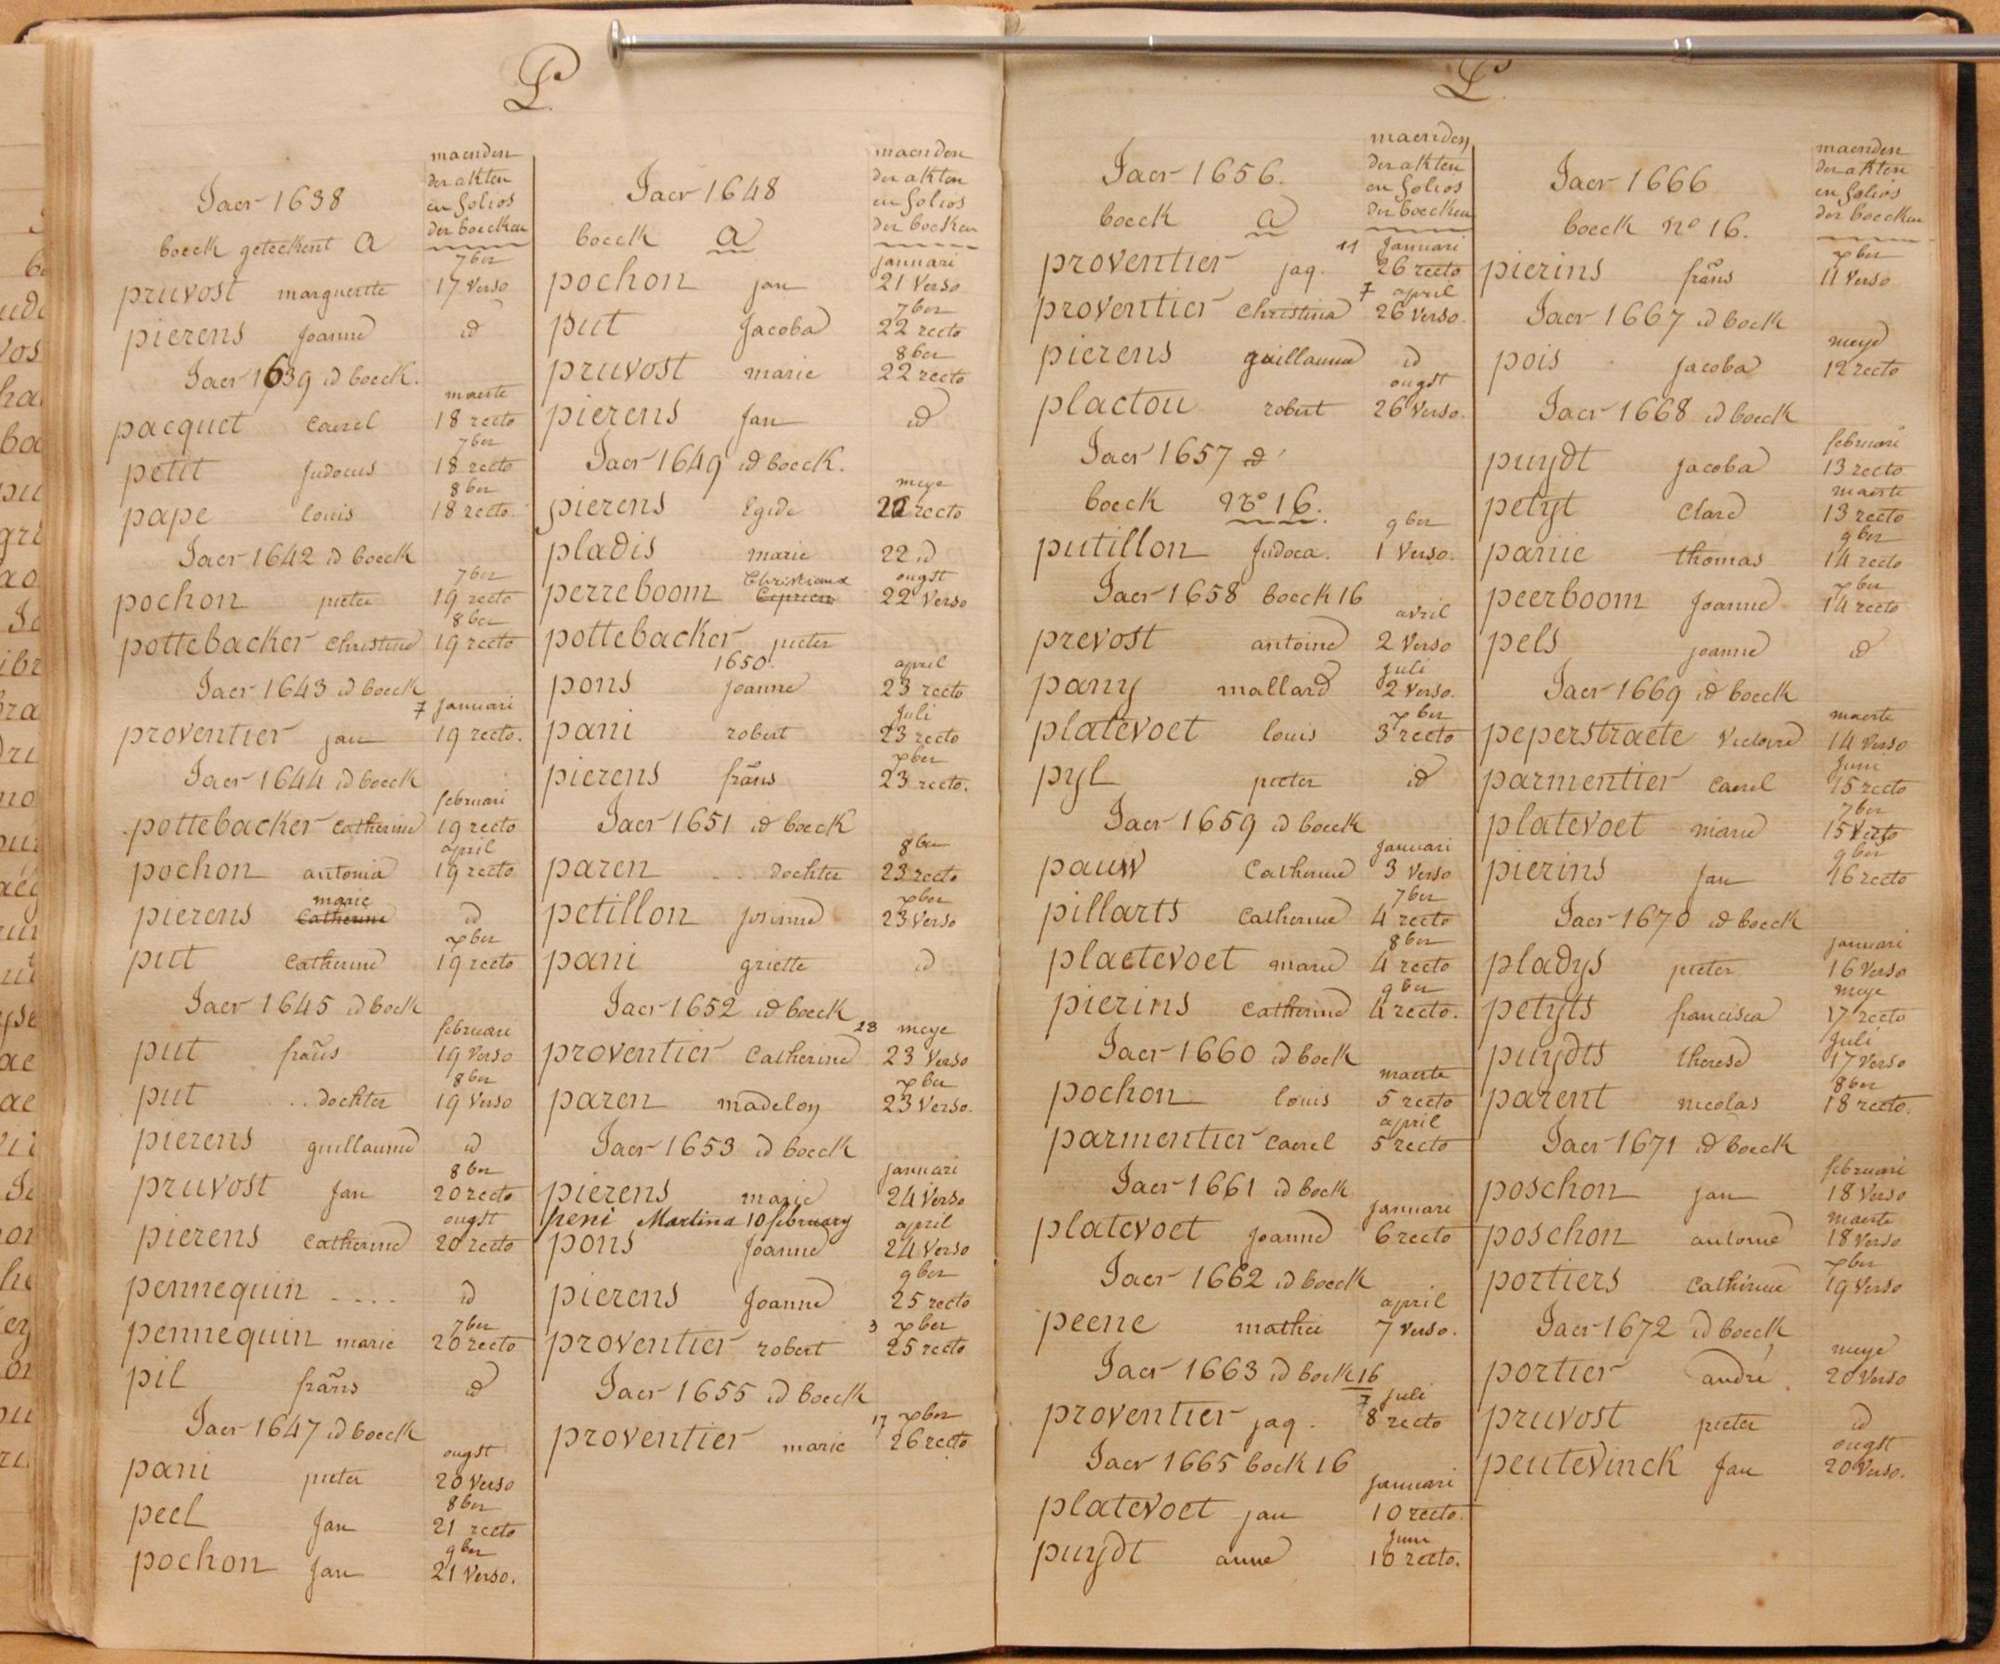 P.
maenden
der akten
en folios
der boecken
Jaer 1638
boeck geteekent A
7ber
pruvost marguerite 17 verso
pierens Joanne id
Jaer 1639 id boeck.
maerte
pacquet Carel 18 recto
7ber
petit Judocus 18 recto
8ber
pape louis 18 recto
Jaer 1642 id boeck
7ber
pochon pieter 19 recto
8ber
pottebacker Christine 19 recto
Jaer 1643 id boeck
7 januari
proventier jan 19 recto.
Jaer 1644 id boeck
februari
pottebacker Catherine 19 recto
april
pochon antonia 19 recto
marie
pierens Catherine id
xber
put Catherine 19 recto
Jaer 1645 id boeck
februari
put frans 19 verso
8ber
put .. dochter 19 verso
pierens guillaume id
8ber
pruvost Jan 20 recto
ougst
pierens Catherine 20 recto
pennequin .... id
7ber
pennequin marie 20 recto
pil frans id
Jaer 1647 id boeck
ougst
pani pieter 20 verso
8ber
peel Jan 21 recto
9ber
pochon Jan 21 verso.
maenden
der akten
en folios
der boecken
Jaer 1648
boeck A
januari
pochon jan 21 verso
7ber
put Jacoba 22 recto
8ber
pruvost marie 22 recto
pierens Jan id
Jaer 1649 id boeck.
meye
pierens Egide 22 recto
pladis marie 22 id
Christiaens ougst
perreboom Ciprien 22 verso
pottebacker pieter
1650 april
pons Joanne 23 recto
Juli
pani robert 23 recto
xber
pierens frans 23 recto.
Jaer 1651 id boeck
8ber
paren .. dochter 23 recto
xber
petillon josinne 23 verso
pani griette id
Jaer 1652 id boeck
23 meye
proventier Catherine 23 verso
xber
paren madelon 23 verso.
Jaer 1653 id boeck
januari
pierens marie 24 verso
peni Martina 10 february
april
pons Joanne 24 verso
9ber
pierens Joanne 25 recto
3 xber
proventier robert 25 recto
Jaer 1655 id boeck
17 xber
proventier marie 26 recto
P.
maenden
der akten
en folios
der boecken
Jaer 1656.
boeck A
11 Januari
proventier jaq. 26 recto
7 april
proventier Christina 26 verso.
pierens guillaume id
ougst
plactou robert 26 verso.
Jaer 1657 id
boeck no 16.
9ber
putillon Judoca. 1 verso.
Jaer 1658 boeck 16
avril
prevost antoine 2 verso
Juli
pany mallard 2 verso.
xber
platevoet louis 3 recto
pyl pieter id
Jaer 1659 id boeck
Januari
pauw Catherine 3 verso
7ber
pillarts Catherine 4 recto
8ber
plaetevoet marie 4 recto
9ber
pierins Catherine 4 recto.
Jaer 1660 id boek
maerte
pochon louis 5 recto
april
parmentier Carel 5 recto
Jaer 1661 id boek
januari
platevoet Joanne 6 recto
Jaer 1662 id boeck
april
peene mathei 7 verso.
Jaer 1663 id boek 16
7 juli
proventier jaq. 8 recto
Jaer 1665 boek 16
januari
platevoet jan 10 recto.
Juni
puydt anne 10 recto.
maenden
der akten
en folios
der boecken
Jaer 1666
boeck no 16.
xber
pierins frans 11 verso
Jaer 1667 id boek
meye
pois Jacoba 12 recto
Jaer 1668 id boeck
februari
puydt jacoba 13 recto
maerte
petyt Clare 13 recto
9ber
panie thomas 14 recto
xber
peerboom Joanne 14 recto
pels joanne id
Jaer 1669 id boeck
maerte
peperstraete Victoire 14 verso
Juni
parmentier Carel 15 recto
7ber
platevoet marie 15 verso
9ber
pierins Jan 16 recto
Jaer 1670 id boeck
januari
pladys pieter 16 verso
meye
petyts francisca 17 recto
Juli
puydts therese 17 verso
8ber
parent nicolas 18 recto.
Jaer 1671 id boeck
februari
poschon jan 18 verso
maerte
poschon antoine 18 verso
xber
portiers Catherine 19 verso
Jaer 1672 id boeck
meye
portier andré 20 verso
pruvost pieter id
ougst
peutevinck Jan 20 verso.